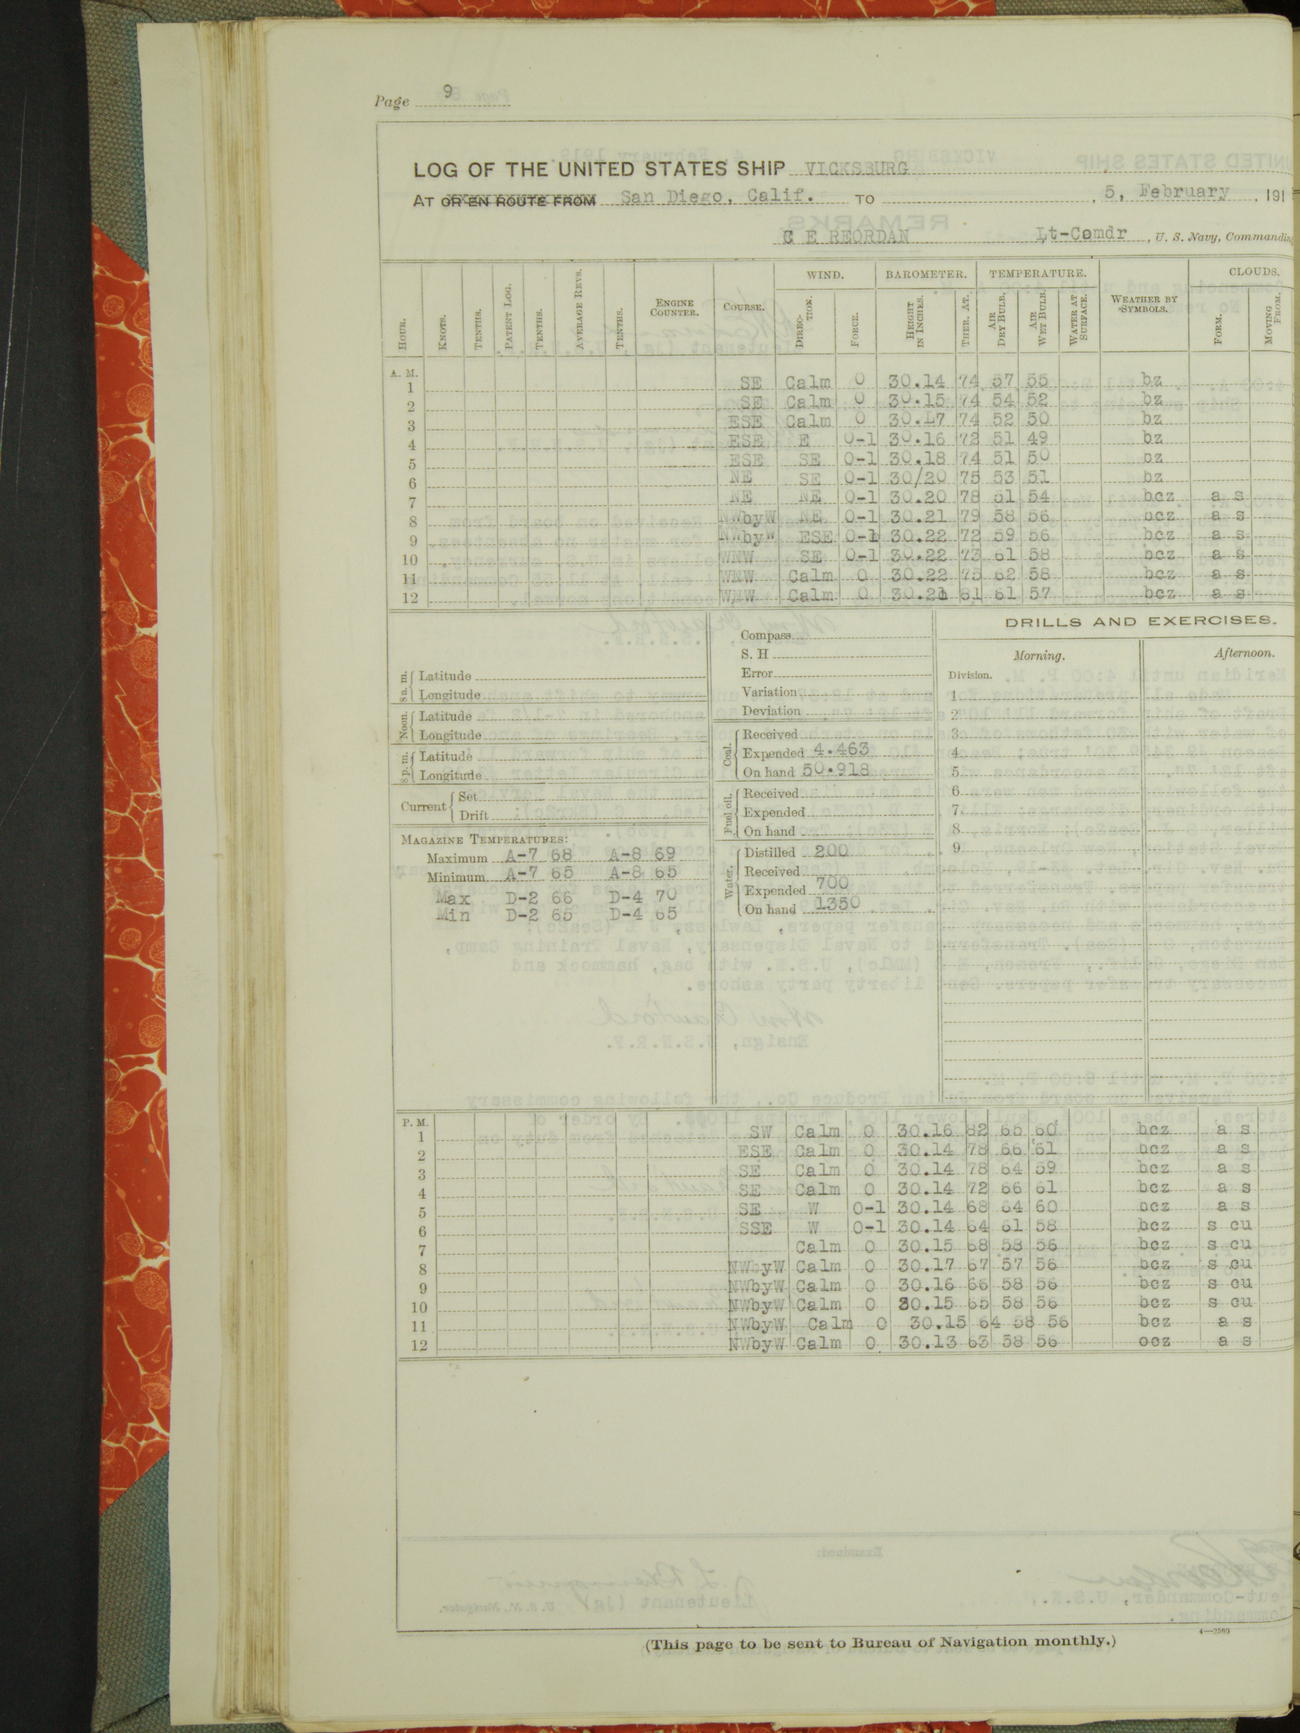 Page 9
LOG OF THE UNITED STATES SHIP VICKSBURG
AT OR EN ROUTE FROM San Diego, Calif. TO , 5, February , 191
C E REORDAN Lt-Comdr , U. S. Navy, Commanding
WIND. BAROMETER. TEMPERATURE. CLOUDS.
HOUR. KNOTS. TENTHS. PATENT LOG. TENTHS. AVERAGE REVS. TENTHS. ENGINE COUNTER. COURSE. DIREC-TION. FORCE. HEIGHT IN INCHES. THER. AT. AIR DRY BULB. AIR WET BULB. WATER AT SURFACE. WEATHER BY SYMBOLS. FORM. MOVING FROM.
A. M.
1 SE Calm 0 30.14 74 57 55 bz
2 SE Calm 0 30.15 74 54 52 bz
3 ESE Calm 0 30.17 74 52 50 bz
4 ESE E 0-1 30.16 72 51 49 bz
5 ESE SE 0-1 30.18 74 51 50 bz
6 NE SE 0-1 30/20 75 53 51 bz
7 NE NE 0-1 30.20 78 51 54 bcz a s
8 NWbyW NE 0-1 30.21 79 58 56 bcz a s
9 NWbyW ESE 0-1 30.22 72 59 56 bcz a s
10 WNW SE 0-1 30.22 73 61 58 bcz a s
11 WNW Calm 0 30.22 75 62 58 bcz a s
12 WNW Calm 0 81 61 57 bcz a s
8 a. m. Latitude
Longitude
Noon. Latitude
Longitude
8 p. m. Latitude
Longitude
Current Set
Drift
MAGAZINE TEMPERATURES:
Maximum A-7 68 A-8 69
Minimum A-7 65 A-8 65
Max D-2 66 D-4 70
Min D-2 65 D-4 65
Compass
S. H
Error
Variation
Deviation
Coal. Received
Expended 4.463
On hand 50.918
Fuel oil. Received
Expended
On hand
Water. Distilled 200
Received
Expended 700
On hand 1350
DRILLS AND EXERCISES.
Morning. Afternoon.
Division.
1
2
3
4
5
6
7
8
9
P. M.
1 SW Calm 0 30.16 82 65 60 bcz a s
2 ESE Calm 0 30.14 78 66 61 bcz a s
3 SE Calm 0 30.14 78 64 59 bcz a s
4 SE Calm 0 30.14 72 66 61 bcz a s
5 SE W 0-1 30.14 68 64 60 bcz a s
6 SSE W 0-1 30.14 64 61 58 bcz s cu
7 Calm 0 30.15 68 58 56 bcz s cu
8 NWbyW Calm 0 30.17 67 57 56 bcz s cu
9 NWbyW Calm 0 30.16 66 58 56 bcz s cu
10 NWbyW Calm 0 30.15 65 58 56 bcz s cu
11 NWbyW Calm 0 30.15 64 58 56 bcz a s
12 NWbyW Calm 0 30.13 63 58 56 bcz a s
(This page to be sent to Bureau of Navigation monthly.)